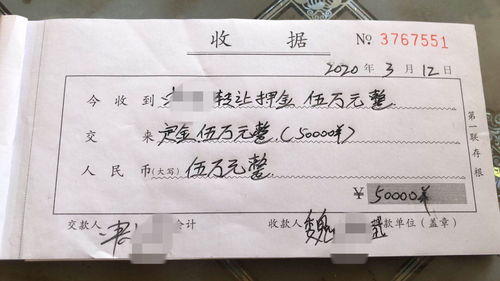 收 据 No 3767551
2020 年 3 月 12 日
今收到 转让押金 伍万元整
交 来 定金伍万元整(50000¥)
人民币(大写) 伍万元整
¥ 50000¥
第一联存根
交款人 会计 收款人 魏 款单位(盖章)